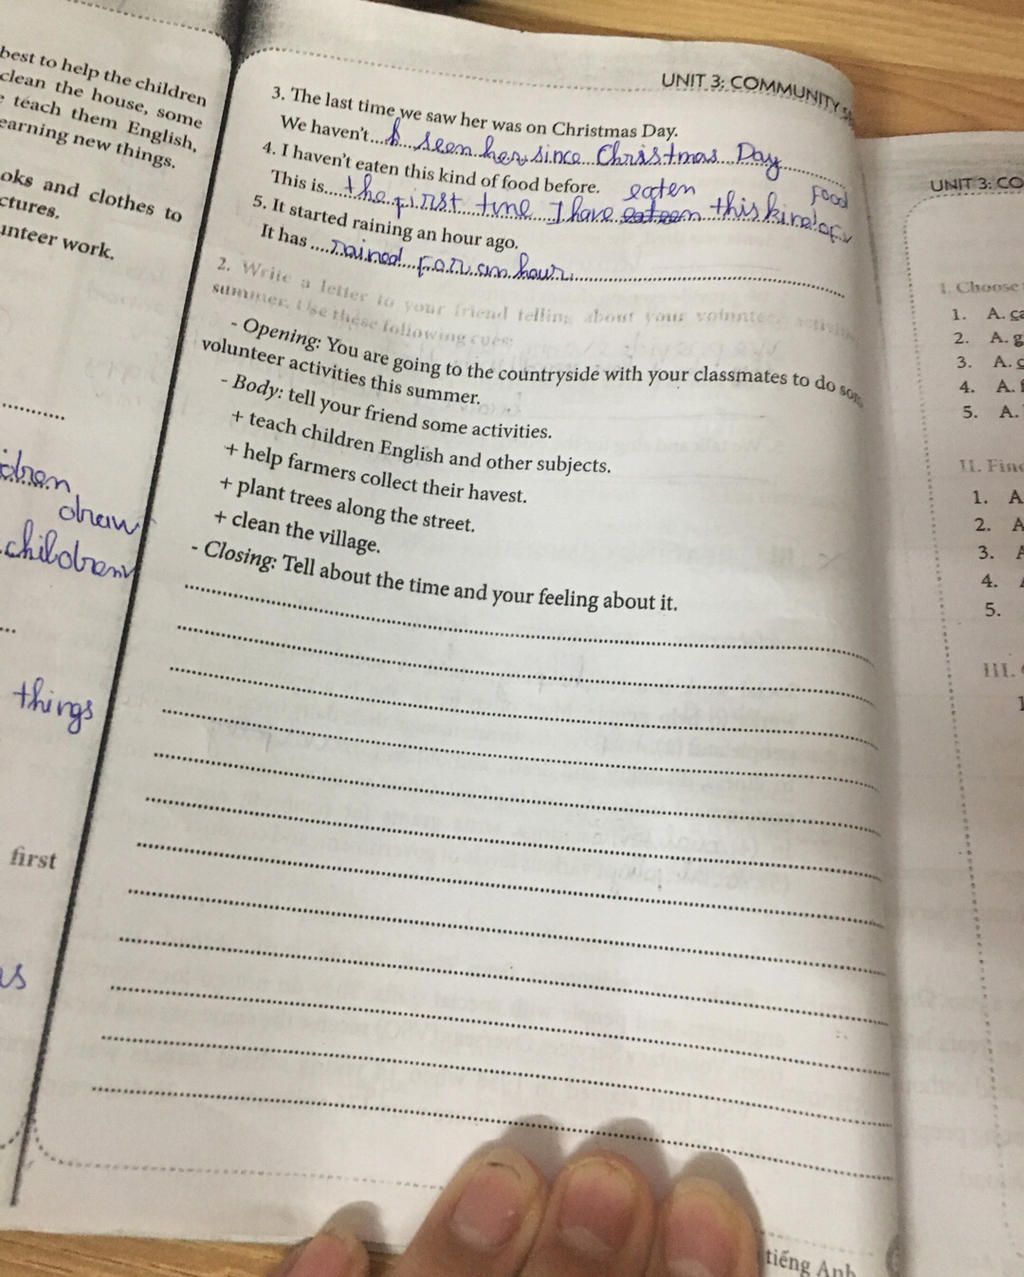 best to help the children
clean the house, some
teach them English,
earning new things.
oks and clothes to
ctures.
unteer work.
dren
draw
children
things
first
UNIT 3: COMMUNITY
3. The last time we saw her was on Christmas Day.
We haven't... seen her since Christmas Day
4. I haven't eaten this kind of food before.
eaten food
This is...the first time I have this kind of
5. It started raining an hour ago.
It has ....rained for an hour
2. Write a letter to your friend telling about your volunteer
summer. Use these following cues:
- Opening: You are going to the countryside with your classmates to do som
volunteer activities this summer.
- Body: tell your friend some activities.
+ teach children English and other subjects.
+ help farmers collect their havest.
+ plant trees along the street.
+ clean the village.
- Closing: Tell about the time and your feeling about it.
tiếng Anh
UNIT 3: CO
I. Choose
1. A. ca
2. A. g
3. A. c
4. A. f
5. A.
II. Find
1. A
2. A
3. A
4.
5.
III.